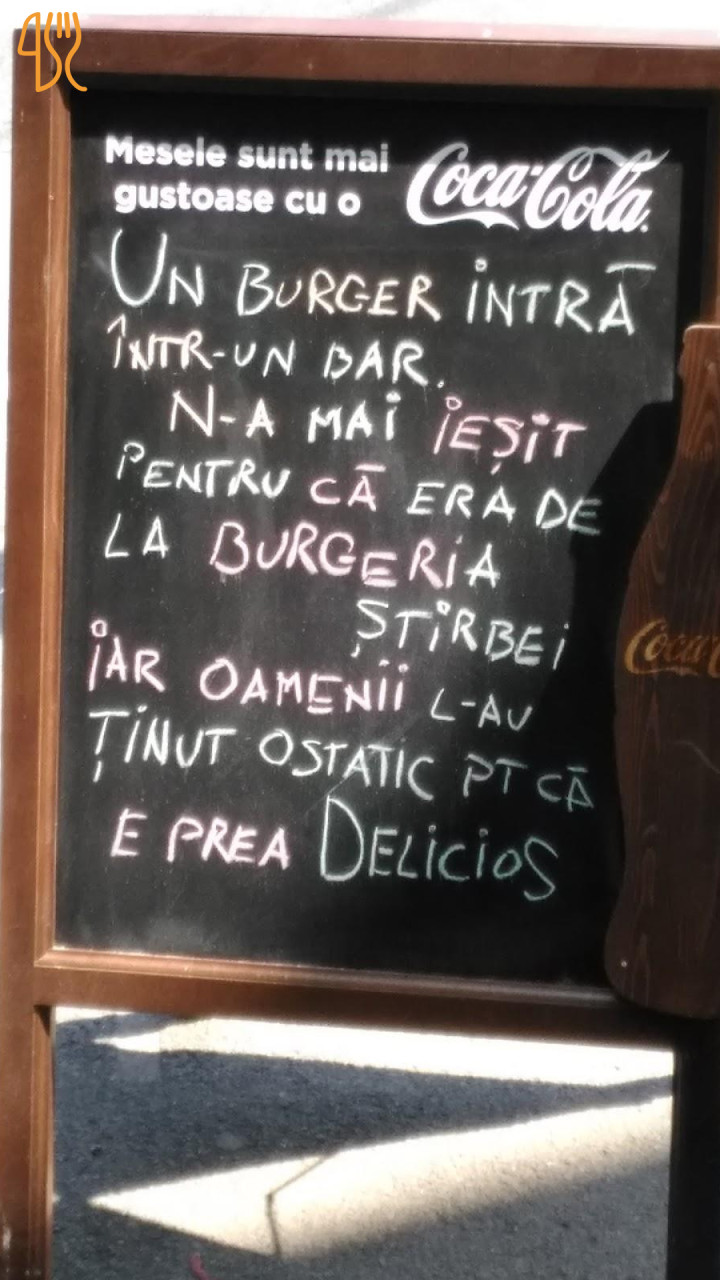 Mesele sunt mai
gustoase cu o Coca-Cola
UN BURGER INTRĂ
ÎNTR-UN BAR.
N-A MAI IEȘIT
PENTRU CĂ ERA DE
LA BURGERIA
ȘTIRBEI
IAR OAMENII L-AU
ȚINUT OSTATIC PT CĂ
E PREA DELICIOS
Coca-C